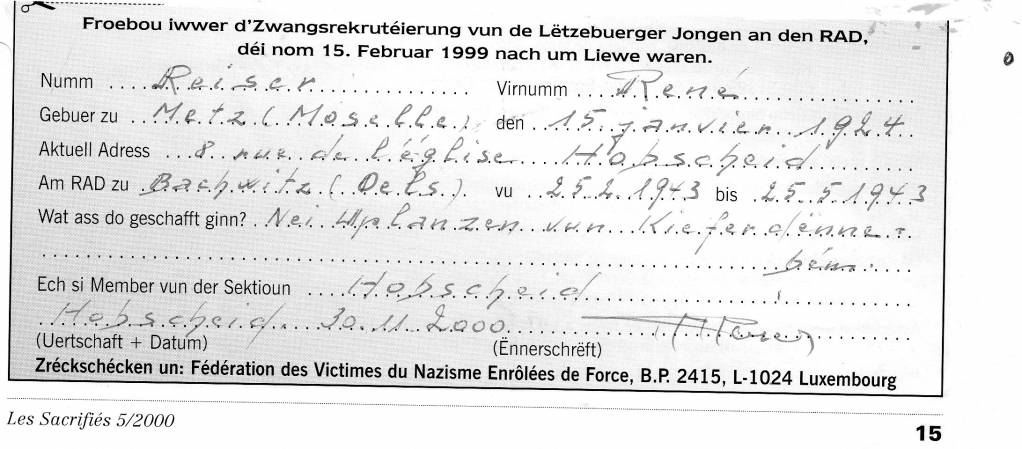 Froebou iwwer d'Zwangsrekrutéierung vun de Lëtzebuerger Jongen an den RAD,
déi nom 15. Februar 1999 nach um Liewe waren.
Numm Reiser Virnumm René
Gebuer zu Metz (Moselle) den 15 janvier 1924
Aktuell Adress 8 rue de l'église Hobscheid
Am RAD zu Bachwitz (Oels). vu 25.2.1943 bis 25.5.1943
Wat ass do geschafft ginn? Nei Uplanzen vun Kieferdënne=
bém
Ech si Member vun der Sektioun Hobscheid
Hobscheid 30.11.2000
(Uertschaft + Datum) (Ënnerschrëft)
Zréckschécken un: Fédération des Victimes du Nazisme Enrôlées de Force, B.P. 2415, L-1024 Luxembourg
Les Sacrifiés 5/2000
15